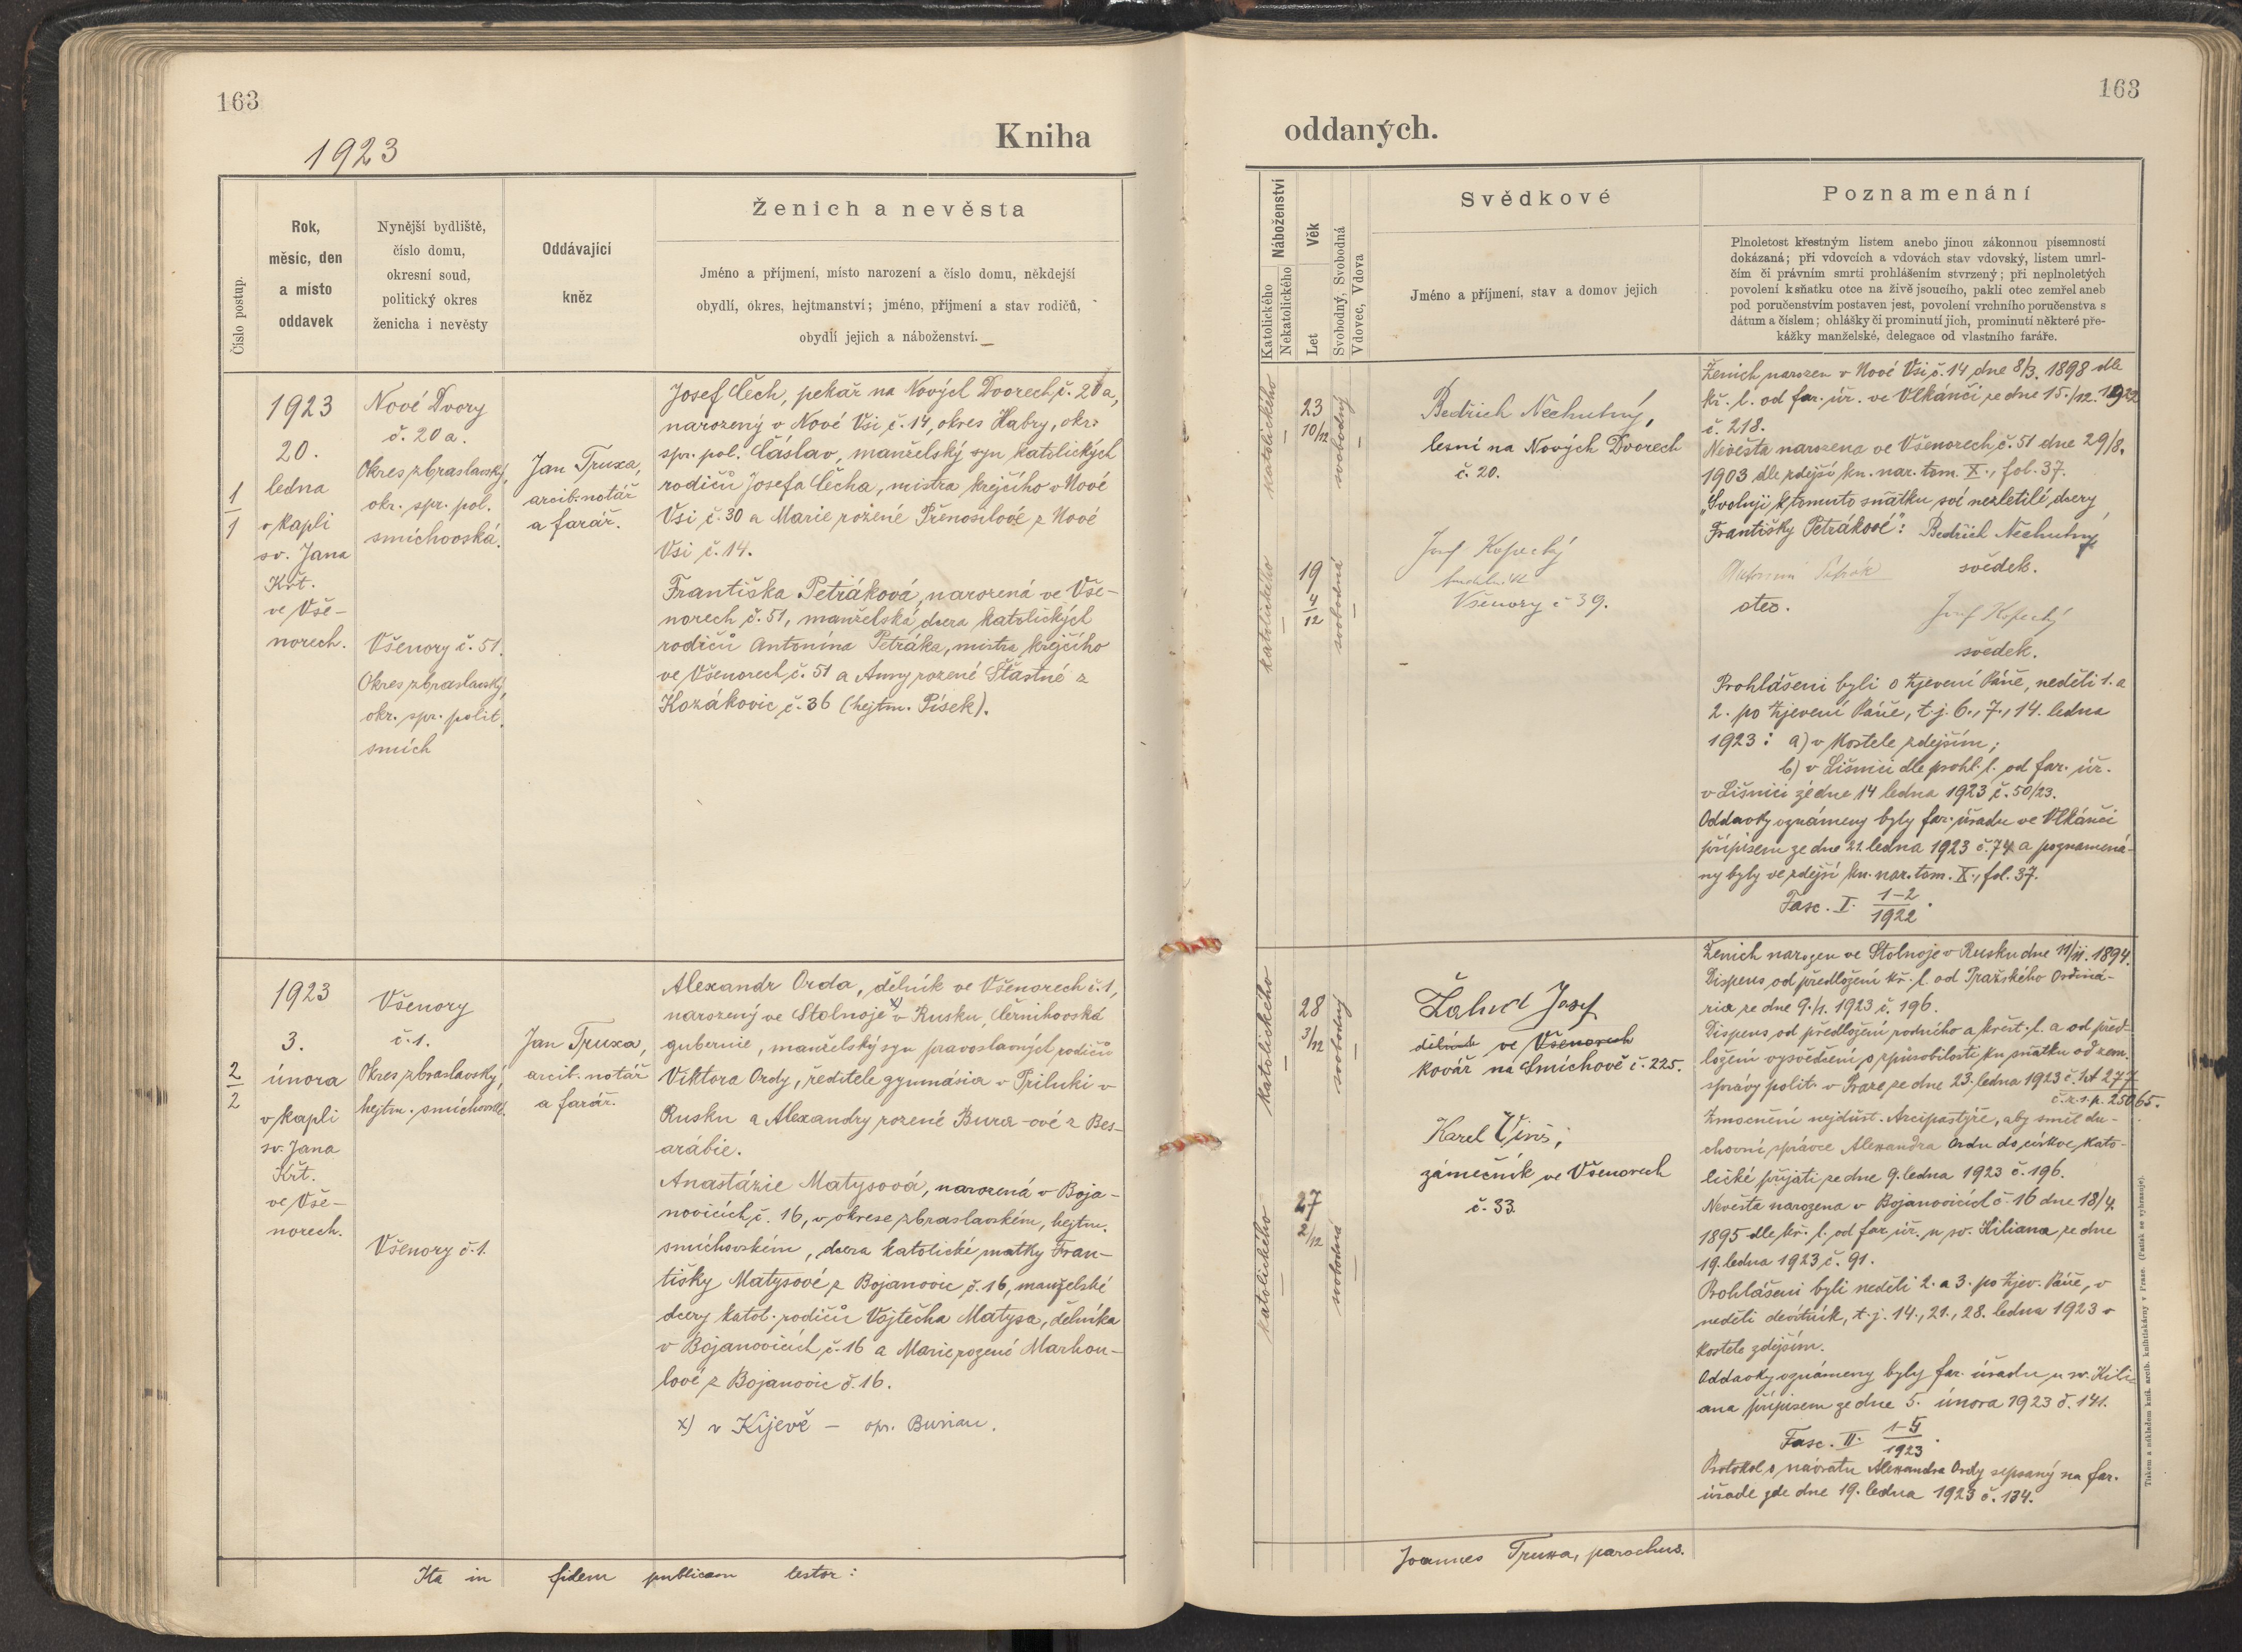 163
1923
Kniha
Číslo postup.
Rok,
měsíc, den
a místo
oddavek
Nynější bydliště,
číslo domu,
okresní soud,
politický okres
ženicha i nevěsty
Oddávající
kněz
Ženich a nevěsta
Jméno a příjmení, místo narození a číslo domu, někdejší
obydlí, okres, hejtmanství; jméno, příjmení a stav rodičů,
obydlí jejich a náboženství.
1
1
1923
20.
ledna
v kapli
sv. Jana
Křt.
ve Vše-
norech.
Nové Dvory
č. 20 a.
Okres zbraslavský,
okr. spr. pol.
smíchovská.
Všenory č. 51.
Okres zbraslavský,
okr. spr. polit.
smích
Jan Truxa,
arcib. notář
a farář.
Josef Čech, pekař na Nových Dvorech č. 20 a,
narozený v Nové Vsi č. 14, okres Habry, okr.
spr. pol. Čáslav, manželský syn katolických
rodičů Josefa Čecha, mistra krejčího v Nové
Vsi č. 30 a Marie rozené Přenosilové z Nové
Vsi č. 14.
Františka Petráková, narozená ve Vše-
norech č. 51, manželská dcera katolických
rodičů Antonína Petráka, mistra krejčího
ve Všenorech č. 51 a Anny rozené Šťastné z
Kozákovic č. 36 (hejtm. Písek).
2
2
1923
3.
února
v kapli
sv. Jana
Křt.
ve Vše-
norech.
Všenory
č. 1.
Okres zbraslavský,
hejtm. smíchovské.
Všenory č. 1.
Jan Truxa,
arcib. notář
a farář.
Alexandr Orda, dělník ve Všenorech č. 1,
narozený ve Stolnoje x) v Rusku, Černihovská
gubernie, manželský syn pravoslavných rodičů
Viktora Ordy, ředitele gymnásia v Priluki v
Rusku a Alexandry rozené -ové z Bes-
arábie.
Anastázie Matysová, narozená v Boja-
novicích č. 16, v okrese zbraslavském, hejtm.
smíchovském, dcera katolické matky Fran-
tišky Matysové z Bojanovic č. 16, manželské
dcery katol. rodičů Vojtěcha Matysa, dělníka
v Bojanovicích č. 16 a Marie rozené Marhou-
lové z Bojanovic č. 16.
x) v Kijevě – opr. Burian.
Ita in fidem publicam testor:
163
oddaných.
Náboženství
Katolického
Nekatolického
Věk
Let
Svobodný, Svobodná
Vdovec, Vdova
Svědkové
Jméno a příjmení, stav a domov jejich
Poznamenání
Plnoletost křestným listem anebo jinou zákonnou písemností
dokázaná; při vdovcích a vdovách stav vdovský, listem umrl-
čím či právním smrti prohlášením stvrzený; při neplnoletých
povolení k sňatku otce na živě jsoucího, pakli otec zemřel aneb
pod poručenstvím postaven jest, povolení vrchního poručenstva s
dátum a číslem; ohlášky či prominutí jich, prominutí některé pře-
kážky manželské, delegace od vlastního faráře.
katolického
–
23
10/12
svobodný
–
katolického
–
19
4
12
svobodná
–
Bedřich Nechutný,
lesní na Nových Dvorech
č. 20.
Josef Kopecký
Všenory č 39.
Ženich narozen v Nové Vsi č. 14 dne 8/3. 1898 dle
kř. l. od far. úř. ve Vlkánči ze dne 15./12. 1922
č. 218.
Nevěsta narozena ve Všenorech č. 51 dne 29/8.
1903 dle zdejší kn. nar. tom. X., fol. 37.
„Svoluji k tomuto sňatku své nezletilé dcery
Františky Petrákové": Bedřich Nechutný
svědek.
otec.
Josef Kopecký
svědek.
Prohlášeni byli o Zjevení Páně, neděli 1. a
2. po Zjevení Páně, t. j. 6., 7., 14. ledna
1923: a) v kostele zdejším;
b) v Líšnici dle prohl. l. od far. úř.
v Líšnici ze dne 14 ledna 1923 č. 50/23.
Oddavky oznámeny byly far. úřadu ve Vlkánči
přípisem ze dne 22 ledna 1923 č. 74 a poznamená-
ny byly ve zdejší kn. nar. tom. X., fol. 37.
Fasc. I. 1-2
1922.
katolického
–
28
3/12
svobodný
–
katolického
–
27
2/12
svobodná
–
Josef
dělník ve Všenorech
kovář na Smíchově č. 225.
Karel Vinš,
zámečník ve Všenorech
č. 33.
Ženich narozen ve Stolnoje v Rusku dne 11/11. 1894.
Dispens od předložení kř. l. od Pražského Ordiná-
ria ze dne 9./1. 1923 č. 196.
Dispens od předložení rodného a křest. l. a od před-
ložení vysvědčení o způsobilosti ku sňatku od zem.
správy polit. v Praze ze dne 23. ledna 1923 č. 1 A 277
č. z. s. p. 25065.
Zmocnění nejdůst. Arcipastýře, aby směl du-
chovní správce Alexandra Ordu do církve kato-
lické přijati ze dne 9. ledna 1923 č. 196.
Nevěsta narozena v Bojanovicích č. 16 dne 18/4.
1895 dle kř. l. od far. úř. u sv. Kiliana ze dne
19. ledna 1923 č. 91.
Prohlášeni byli neděli 2. a 3. po Zjev. Páně, v
neděli devítník, t. j. 14., 21., 28. ledna 1923 v
kostele zdejším.
Oddavky oznámeny byly far. úřadu u sv. Kili-
ana přípisem ze dne 5. února 1923 č. 141.
Fasc. II. 1-5
1923.
Protokol o návratu Alexandra Ordy sepsaný na far.
úřadě zde dne 19. ledna 1923 č. 134.
Joannes Truxa, parochus.
Tiskem a nákladem kníž. arcib. knihtiskárny v Praze. (Patisk se vyhrazuje).